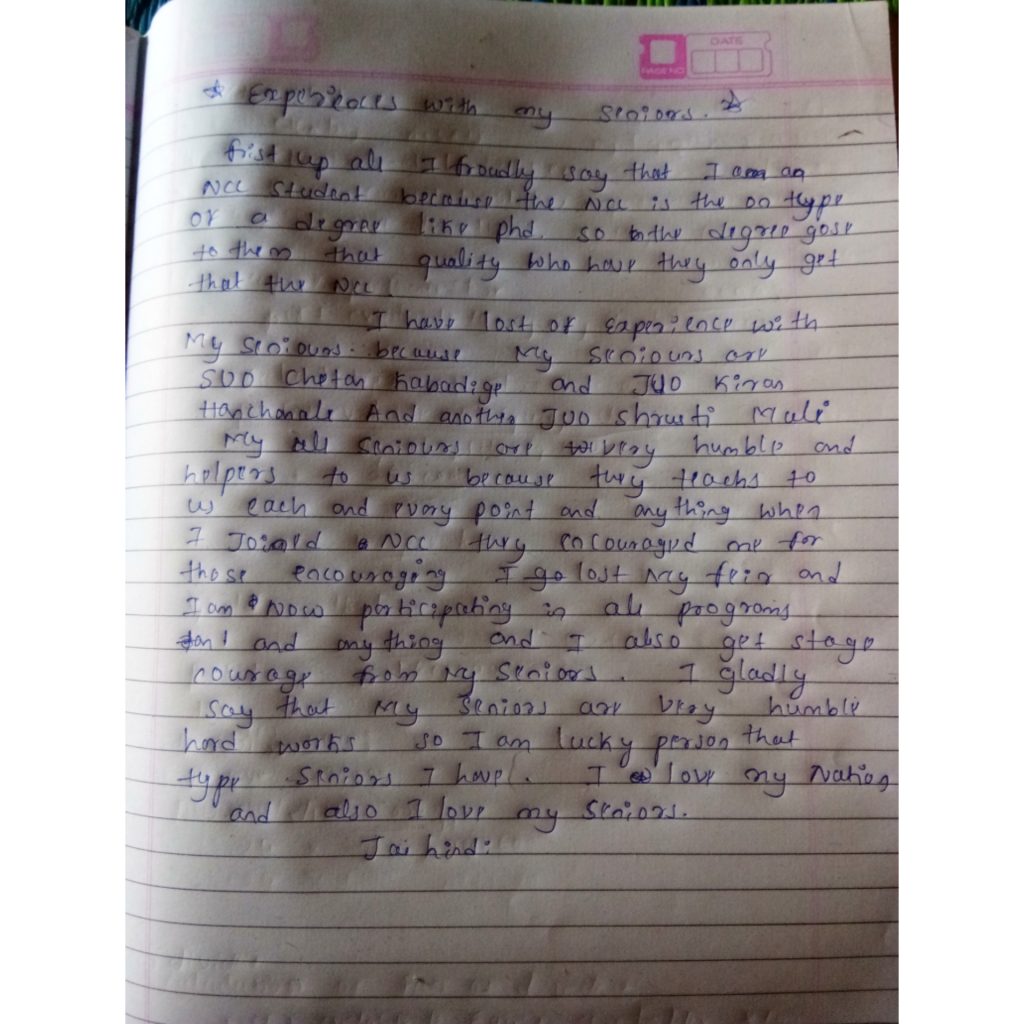 PAGE NO
DATE
☆ Experiences with my seniors. ☆
frist up all I froudly say that I am an
NCC Student because the NCC is the on type
of a degree like phd. so the degree gose
to them that quality who have they only get
that the NCC.
I have lost of Experience with
My seniours. because My seniours are
SUO Chetan Kabadige and JUO Kiran
Hanchanale And another JUO Shrusti Mali
My all seniours are very humble and
helpers to us because they teachs to
us each and every point and any thing when
I Joined NCC they encouraged me for
those encouraging I lost My feir and
I am Now participating in all programs
and any thing and I also get stage
courage from My Seniors. I gladly
say that My Seniors are very humble
hard works so I am lucky person that
type Seniors I have. I love my Nation
and also I love my Seniors.
Jai hind: